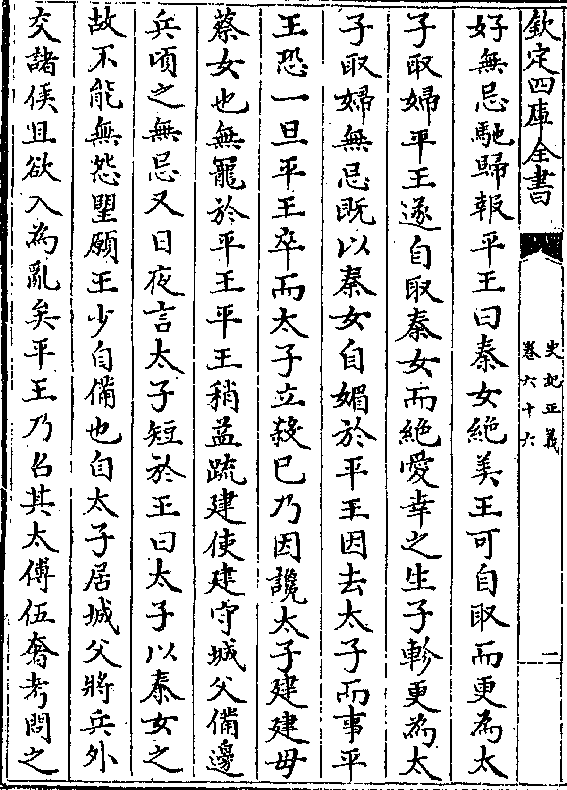 欽定四庫全書
史記正義
卷六十六
二
好無忌馳歸報平王曰秦女絶美王可自取而更為太
子取婦平王遂自取秦女而絶愛幸之生子軫更為太
子取婦無忌既以秦女自媚於平王因去太子而事平
王恐一旦平王卒而太子立殺已乃因讒太子建建母
蔡女也無寵於平王平王稍益疏建使建守城父備邊
兵頃之無忌又日夜言太子短於王曰太子以秦女之
故不能無怨望願王少自備也自太子居城父將兵外
交諸侯且欲入為亂矣平王乃召其太傅伍奢考問之